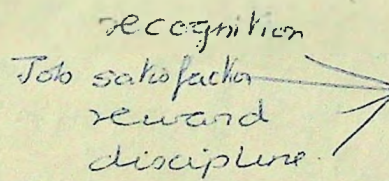 recognition
Job satisfaction
reward
discipline.